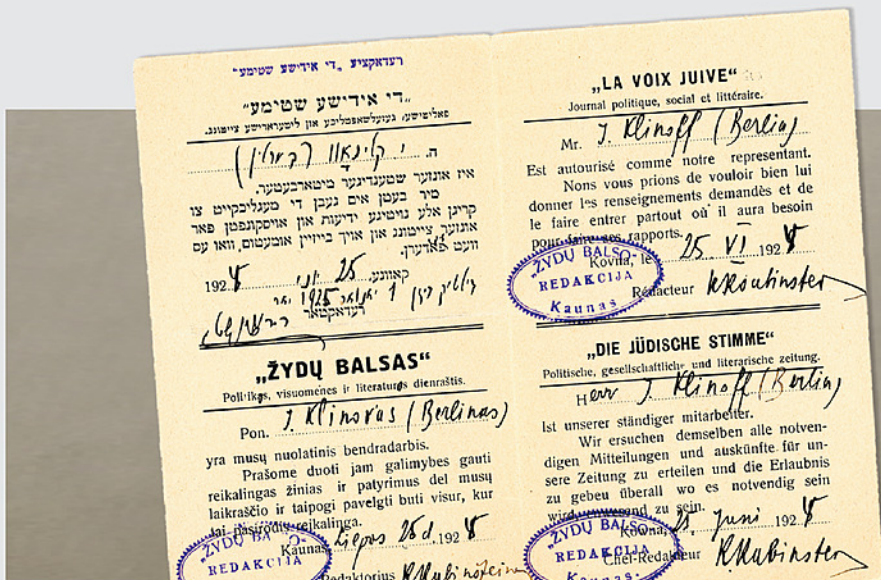 רעדאקציע „די אידישע שטימע"
„די אידישע שטימע"
פאליטישע, געזעלשאפטליכע און ליטערארישע צייטונג.
ה. י קלינאוו (בערלין)
איז אונזער שטענדיגער מיטארבעטער.
מיר בעטן אים געבן די מעגליכקייט צו
קריגן אלע נויטיגע ידיעות און אויסקונפטן פאר
אונזער צייטונג און אויך בייזיין אומעטום, וואו עס
וועט פאדערן.
קאוונע, 25 יוני 1924
גילטיק ביזן 1 יאנואר 1925 יאר
רעדאקטאר
„ŽYDŲ BALSAS"
Politikos, visuomenės ir literatūros dienraštis.
Pon. J. Klinovas (Berlinas)
yra musų nuolatinis bendradarbis.
Prašome duoti jam galimybes gauti
reikalingas žinias ir patyrimus del musų
laikraščio ir taipogi pavelgti buti visur, kur
tai pasirodys reikalinga.
Kaunas, Liepos 25 d. 1924
Redaktorius R. Rubinšteinas
ŽYDŲ BALSO
REDAKCIJA
„LA VOIX JUIVE"
Journal politique, social et littéraire.
Mr. J. Klinoff (Berlin)
Est autourisé comme notre representant.
Nons vous prions de vouloir bien lui
donner les renseignements demandès et de
le faire entrer partout où il aura besoin
pour faire ses rapports.
Kovna, le 25 VI 1924
Rédacteur R. Roubinstein
ŽYDŲ BALSO
REDAKCIJA
Kaunas
„DIE JÜDISCHE STIMME"
Politische, gesellschaftliche und literarische zeitung.
Herr J. Klinoff (Berlin)
Ist unserer ständiger mitarbeiter.
Wir ersuchen demselben alle notven-
digen Mitteilungen und auskünfte für un-
sere Zeitung zu erteilen und die Erlaubnis
zu gebeu überall wo es notvendig sein
wird, anwesend zu sein.
Kowna, 25. Juni 1924
Chef-Redakteur R. Rubinstein
ŽYDŲ BALSO
REDAKCIJA
Kaunas.